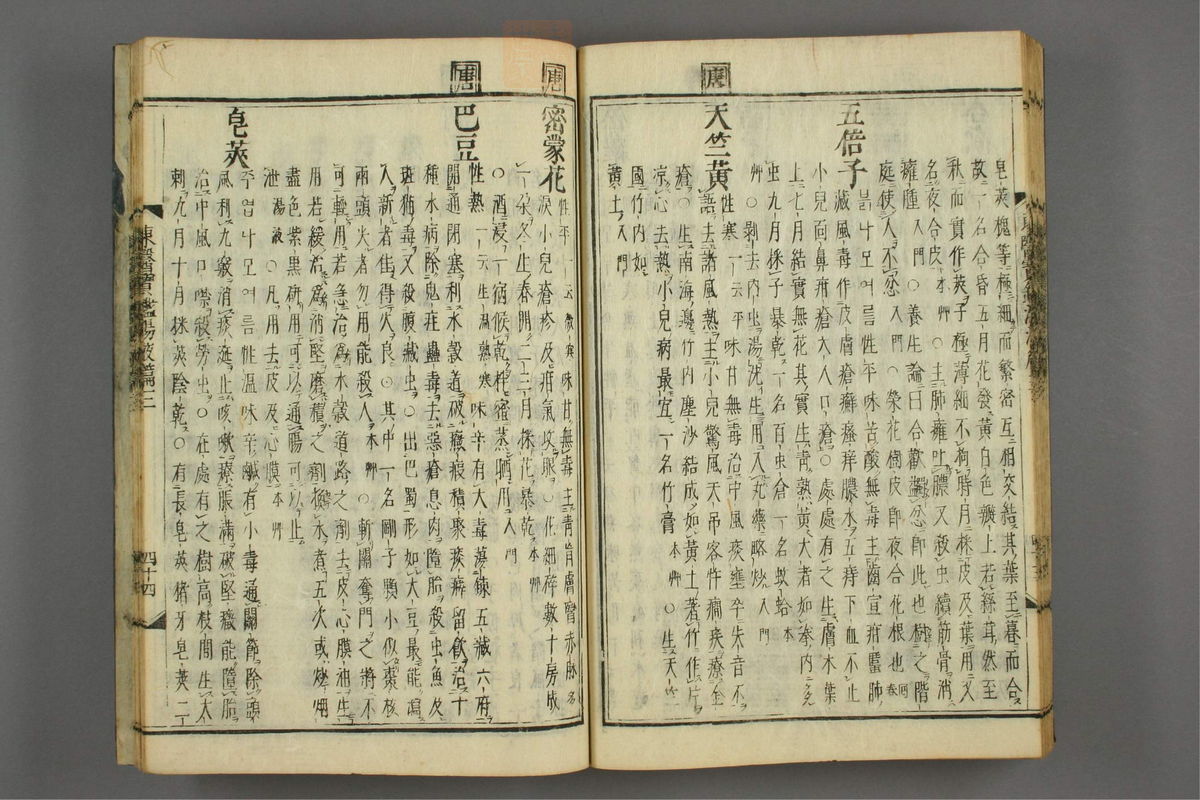 皂莢槐等極細而繁密互相交結其葉至暮而合
故一名合昏五月花發黃白色瓣上若絲茸然至
秋而實作莢子極薄細不拘時月採皮及葉用又
名夜合皮 本艸 ○主肺癰吐膿又殺虫續筋骨消
癰腫 入門 ○榮花樹皮卽夜合花根也 回春
○養生論曰合歡蠲忿卽此也樹之階
庭使人不忿 入門
五倍子
븕나모여름性平味苦酸無毒主齒宣疳䘌肺
藏風毒作皮膚瘡癬瘙痒膿水五痔下血不止
小兒面鼻疳瘡大人口瘡○處處有之生膚木葉
上七月結實無花其實生靑熟黃大者如拳內多
虫九月採子暴乾一名百虫倉一名蚊蛤 本艸
○剝去內虫湯洗生用入丸藥略炒 入門
唐
天竺黃
性寒一云平味甘無毒治中風痰壅卒失音不
語去諸風熱主小兒驚風天吊客忤癎疾療金
瘡○生南海邊竹內塵沙結成如黃土著竹作片
凉心去熱小兒病最宜一名竹膏 本艸 ○生天竺
國竹內如
黃土 入門
唐
密蒙花
性平一云微寒味甘無毒主靑盲膚瞖赤脉多
淚小兒瘡疹及疳氣攻眼○花細碎數十房成
一朶冬生春開二三月採花暴乾 本艸
○酒浸一宿候乾拌蜜蒸晒用 入門
唐
巴豆
性熱一云生溫熟寒味辛有大毒蕩鍊五藏六府
開通閉塞利水穀道破癥瘕積聚痰癖留飮治十
種水病除鬼疰蠱毒去惡瘡息肉墮胎殺虫魚及
斑猫毒又殺腹藏虫○出巴蜀形如大豆最能瀉
人新者佳得火良○其中一名剛子顆小似棗核
兩頭尖者勿用能殺人 本艸 ○斬關奪門之將不
可輕用若急治爲水穀道路之劑去皮心膜油生
用若緩治爲消堅磨積之劑極水者五次或炒烟
盡色紫黑硏用可以通腸可以止
泄 湯液 ○凡用去皮及心膜 本艸
皂莢
주엽나모여름性溫味辛鹹有小毒通關節除頭
風利九竅消痰涎止咳嗽療脹滿破堅癥能墮胎
治中風口噤殺勞虫○在處有之樹高枝間生大
刺九月十月採莢陰乾○有長皂莢猪牙皂莢二
東醫寶鑑湯液篇三
四十四